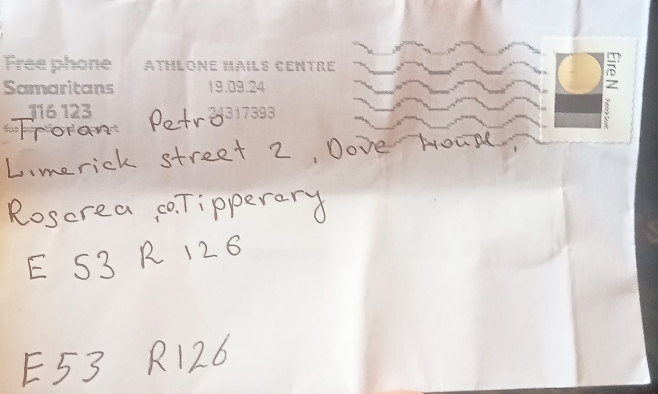 Free phone
Samaritans
116 123
ATHLONE MAILS CENTRE
19.09.24
24317393
Éire N
Troian Petro
Limerick street 2, Dove House,
Roscrea ,co.Tipperary
E 53 R 126
E53 R126